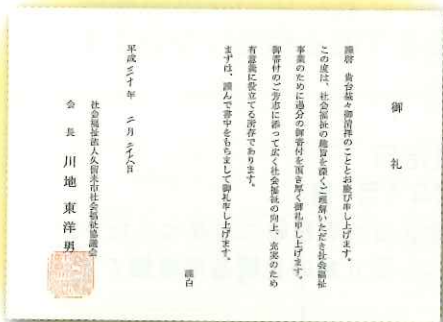 御礼
謹啓 貴台様々御清祥のこととお慶び申し上げます。
この度は、社会福祉の趣旨を深くご理解いただき社会福祉
事業のために過分の御寄付を頂き厚く御礼申し上げます。
御寄付のご芳志に添って広く社会福祉の向上、充実のため
有意義に役立てる所存であります。
まずは、謹んで書中をもちまして御礼申し上げます。
謹白
平成三十年 二月 二十八日
社会福祉法人久留米市社会福祉協議会
会長 川地東洋男